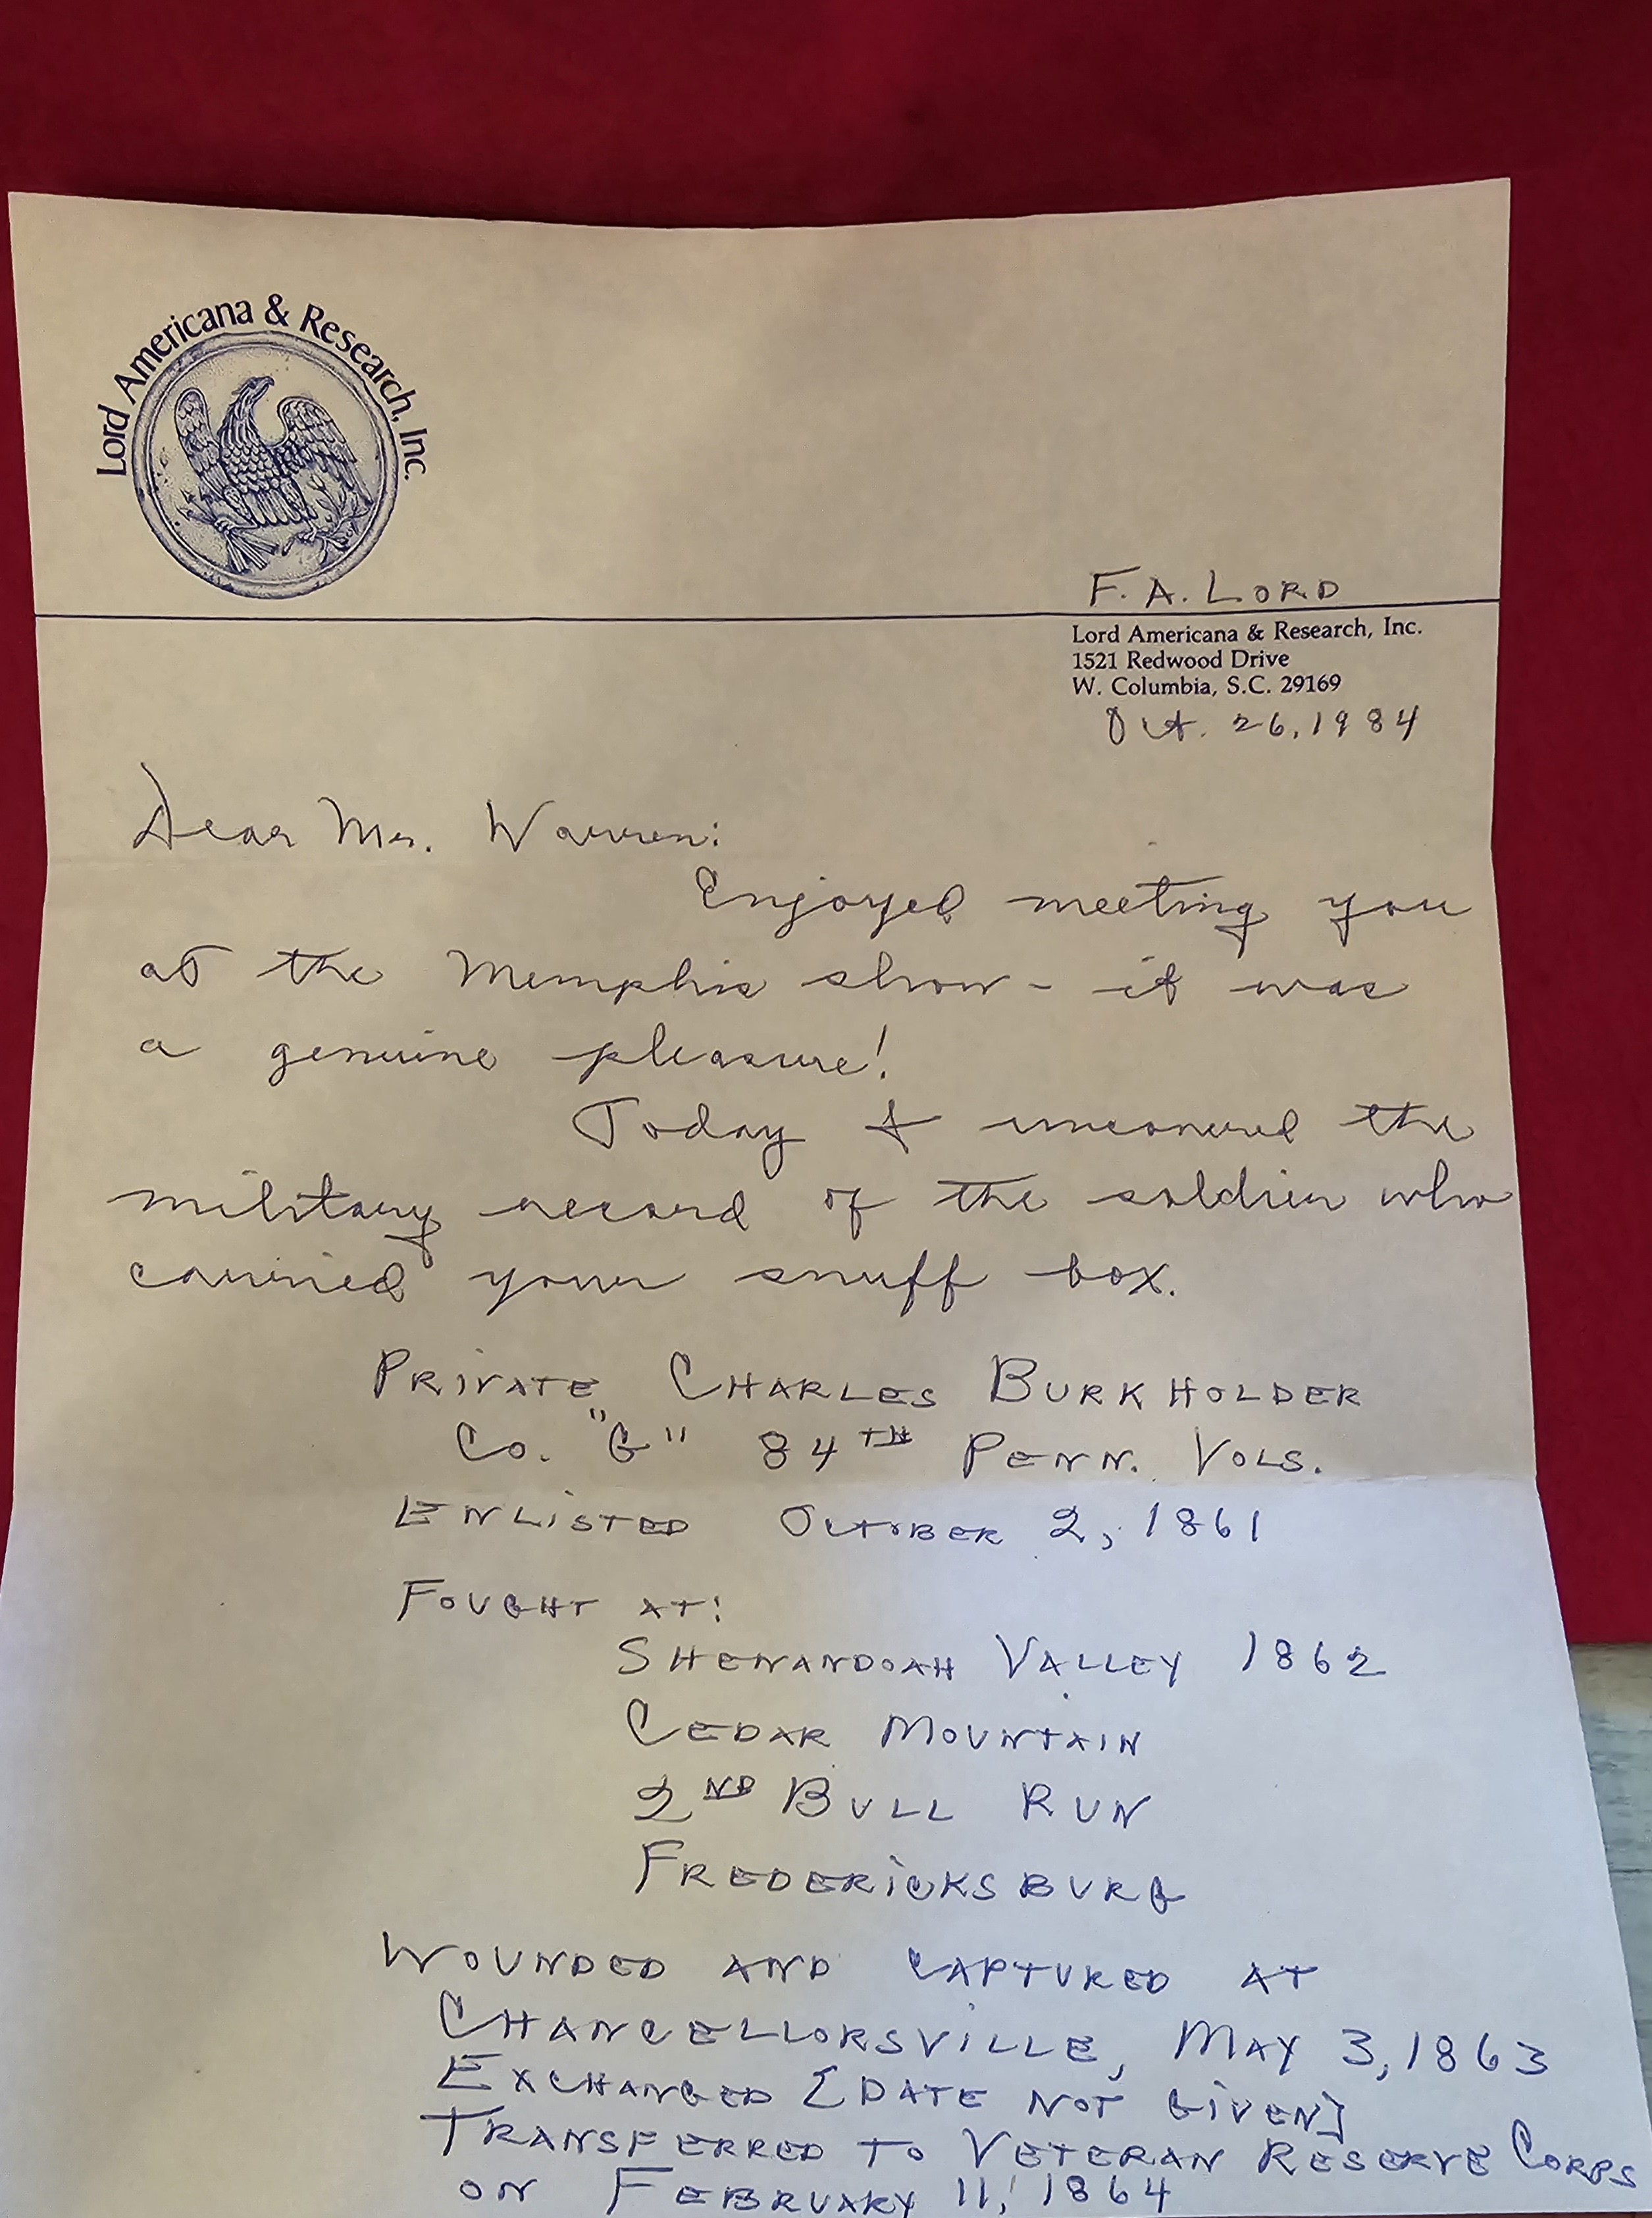 Lord Americana & Research, Inc.
F. A. LORD
Lord Americana & Research, Inc.
1521 Redwood Drive
W. Columbia, S.C. 29169
Oct. 26, 1984
Dear Mr. Warren:
Enjoyed meeting you
at the Memphis show - it was
a genuine pleasure!
Today I uncovered the
military record of the soldier who
carried your snuff box.
PRIVATE CHARLES BURKHOLDER
CO. "G" 84TH PENN. VOLS.
ENLISTED OCTOBER 2, 1861
FOUGHT AT:
SHENANDOAH VALLEY 1862
CEDAR MOUNTAIN
2ND BULL RUN
FREDERICKSBURG
WOUNDED AND CAPTURED AT
CHANCELLORSVILLE, MAY 3, 1863
EXCHANGED [DATE NOT GIVEN]
TRANSFERRED TO VETERAN RESERVE CORPS
ON FEBRUARY 11, 1864